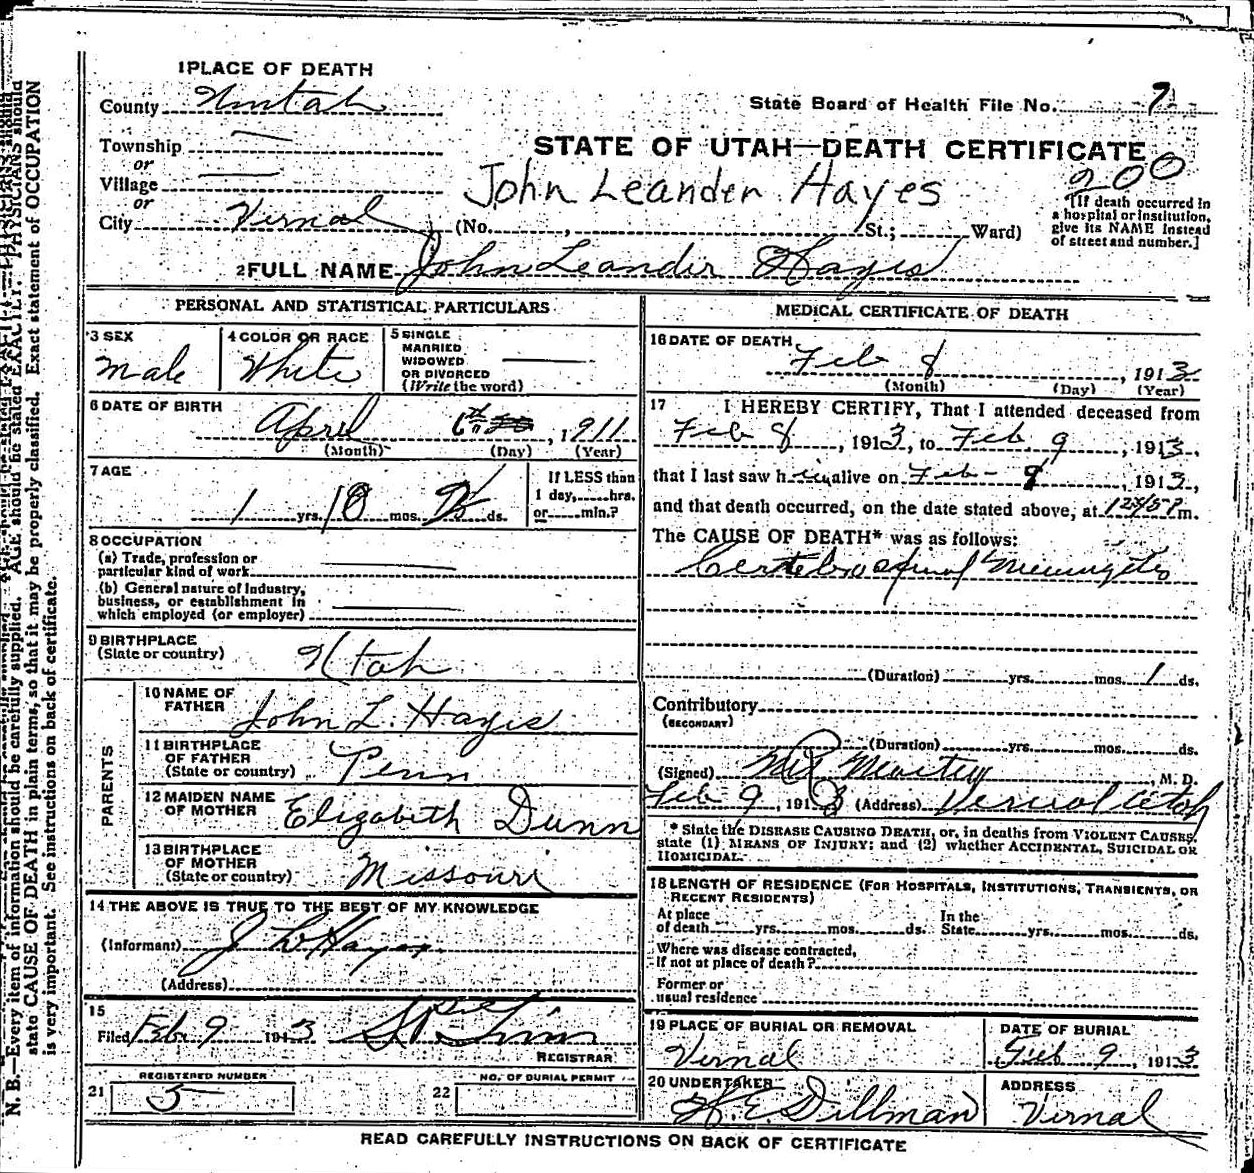 1 PLACE OF DEATH
County Uintah
State Board of Health File No. 7
Township —
or
Village —
or
City Vernal
STATE OF UTAH—DEATH CERTIFICATE
200
John Leander Hayes
(No. , St.; Ward)
[If death occurred in
a hospital or institution,
give its NAME instead
of street and number.]
2 FULL NAME John Leander Hayes
PERSONAL AND STATISTICAL PARTICULARS
3 SEX
Male
4 COLOR OR RACE
White
5 SINGLE
MARRIED
WIDOWED
OR DIVORCED
(Write the word)
6 DATE OF BIRTH
April 6th, 1911
(Month) (Day) (Year)
7 AGE
1 yrs. 10 mos. 2 ds.
If LESS than
1 day, hrs.
or min.?
8 OCCUPATION
(a) Trade, profession or
particular kind of work
(b) General nature of industry,
business, or establishment in
which employed (or employer)
9 BIRTHPLACE
(State or country) Utah
PARENTS
10 NAME OF
FATHER John L. Hayes
11 BIRTHPLACE
OF FATHER
(State or country) Penn
12 MAIDEN NAME
OF MOTHER Elizabeth Dunn
13 BIRTHPLACE
OF MOTHER
(State or country) Missouri
14 THE ABOVE IS TRUE TO THE BEST OF MY KNOWLEDGE
(Informant) J L Hayes
(Address)
15
Filed Feb 9 1913
REGISTRAR
REGISTERED NUMBER
21 5
NO. OF BURIAL PERMIT
22
MEDICAL CERTIFICATE OF DEATH
16 DATE OF DEATH
Feb 8, 1913
(Month) (Day) (Year)
17 I HEREBY CERTIFY, That I attended deceased from
Feb 8, 1913, to Feb 9, 1913,
that I last saw him alive on Feb- 9, 1913,
and that death occurred, on the date stated above, at m.
The CAUSE OF DEATH* was as follows:
Cerebro spinal Meningitis
(Duration) yrs. mos. 1 ds.
Contributory
(SECONDARY)
(Duration) yrs. mos. ds.
(Signed) M. D.
Feb 9, 1913 (Address) Vernal Utah
* State the DISEASE CAUSING DEATH, or, in deaths from VIOLENT CAUSES,
state (1) MEANS OF INJURY; and (2) whether ACCIDENTAL, SUICIDAL OR
HOMICIDAL.
18 LENGTH OF RESIDENCE (FOR HOSPITALS, INSTITUTIONS, TRANSIENTS, OR
RECENT RESIDENTS)
At place In the
of death yrs. mos. ds. State yrs. mos. ds.
Where was disease contracted,
If not at place of death?
Former or
usual residence
19 PLACE OF BURIAL OR REMOVAL
Vernal
DATE OF BURIAL
Feb 9, 1913
20 UNDERTAKER
H. E. Dillman
ADDRESS
Vernal
READ CAREFULLY INSTRUCTIONS ON BACK OF CERTIFICATE
N. B.—Every item of information should be carefully supplied. AGE should be stated EXACTLY. PHYSICIANS should
state CAUSE OF DEATH in plain terms, so that it may be properly classified. Exact statement of OCCUPATION
is very important. See instructions on back of certificate.